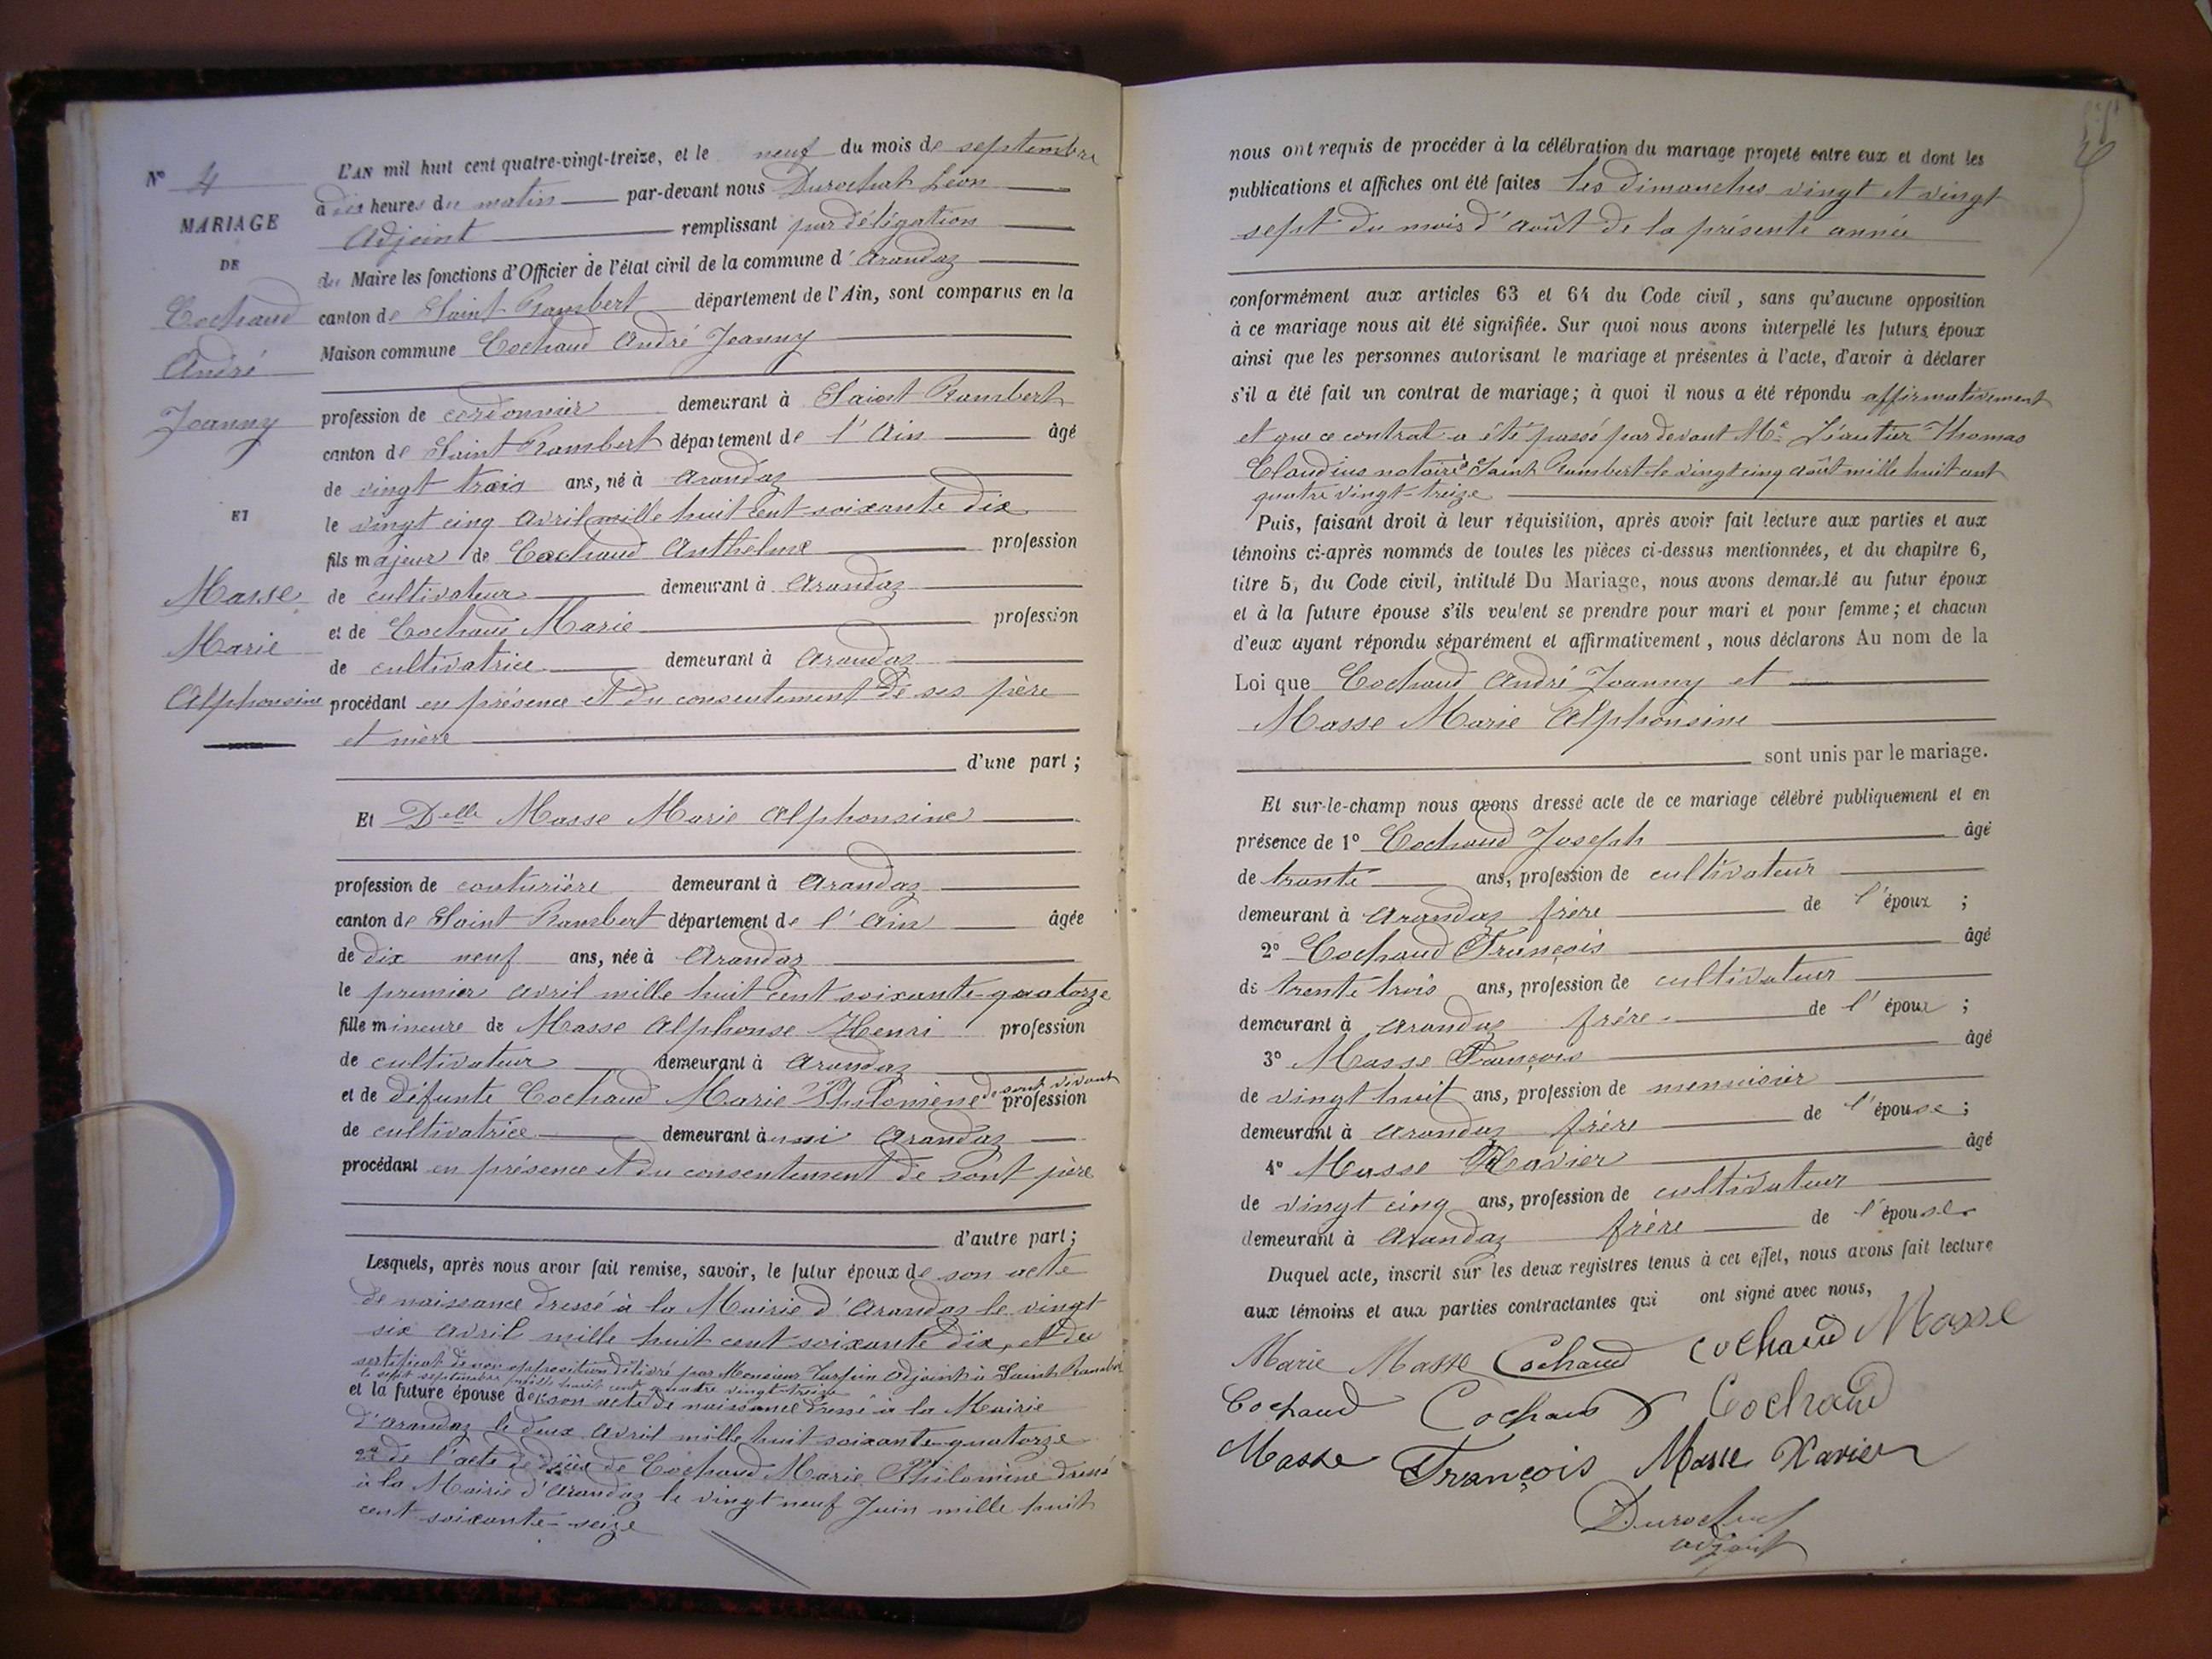 N° 4
MARIAGE
DE
Cochaud
André
Joanny
ET
Masse
Marie
Alphonsine
L'AN mil huit cent quatre-vingt-treize, et le neuf du mois de septembre
à dix heures du matin par-devant nous Durochat Léon
Adjoint remplissant par délégation
du Maire les fonctions d'Officier de l'état civil de la commune d'Arandaz
canton de Saint Rambert département de l'Ain, sont comparus en la
Maison commune Cochaud André Joanny
profession de cordonnier demeurant à Saint Rambert
canton de Saint Rambert département de l'Ain âgé
de vingt trois ans, né à Arandaz
le vingt cinq avril mille huit cent soixante dix
fils majeur de Cochaud Anthelme profession
de cultivateur demeurant à Arandaz
et de Cochaud Marie profession
de cultivatrice demeurant à Arandaz
procédant en présence et du consentement de ses père
et mère
d'une part ;
Et Delle Masse Marie Alphonsine
profession de couturière demeurant à Arandaz
canton de Saint Rambert département de l'Ain âgée
de dix neuf ans, née à Arandaz
le premier avril mille huit cent soixante-quatorze
fille mineure de Masse Alphonse Henri profession
de cultivateur demeurant à Arandaz
et de défunte Cochaud Marie Philomène de sont vivant profession
de cultivatrice demeurant aussi Arandaz
procédant en présence et du consentement de sont père
d'autre part ;
Lesquels, après nous avoir fait remise, savoir, le futur époux de son acte
de naissance dressé à la Mairie d'Arandaz le vingt
six avril mille huit cent soixante dix, et du
certificat de non opposition délivré par Monsieur adjoint à Saint Rambert
le sept septembre mille huit cent quatre vingt-treize
et la future épouse de son acte de naissance dressé à la Mairie
d'Arandaz le deux avril mille huit soixante-quatorze
2° de l'acte de décès de Cochaud Marie Philomène dressé
à la Mairie d'Arandaz le vingt neuf Juin mille huit
cent soixante-seize
nous ont requis de procéder à la célébration du mariage projeté entre eux et dont les
publications et affiches ont été faites les dimanches vingt et vingt
sept du mois d'août de la présente année
conformément aux articles 63 et 64 du Code civil, sans qu'aucune opposition
à ce mariage nous ait été signifiée. Sur quoi nous avons interpellé les futurs époux
ainsi que les personnes autorisant le mariage et présentes à l'acte, d'avoir à déclarer
s'il a été fait un contrat de mariage ; à quoi il nous a été répondu affirmativement
et que ce contrat a été passé par devant Me Léautier Thomas
Claudius notaire à Saint Rambert le vingt cinq août mille huit cent
quatre vingt-treize
Puis, faisant droit à leur réquisition, après avoir fait lecture aux parties et aux
témoins ci-après nommés de toutes les pièces ci-dessus mentionnées, et du chapitre 6,
titre 5, du Code civil, intitulé Du Mariage, nous avons demandé au futur époux
et à la future épouse s'ils veulent se prendre pour mari et pour femme ; et chacun
d'eux ayant répondu séparément et affirmativement, nous déclarons Au nom de la
Loi que Cochaud André Joanny et
Masse Marie Alphonsine
sont unis par le mariage.
Et sur-le-champ nous avons dressé acte de ce mariage célébré publiquement et en
présence de 1° Cochaud Joseph âgé
de trante ans, profession de cultivateur
demeurant à Arandaz frère de l'époux ;
2° Cochaud François âgé
de trente trois ans, profession de cultivateur
demeurant à Arandaz frère de l'époux ;
3° Masse François âgé
de vingt huit ans, profession de menuisier
demeurant à Arandaz frère de l'épouse ;
4° Masse Xavier âgé
de vingt cinq ans, profession de cultivateur
demeurant à Arandaz frère de l'épouse
Duquel acte, inscrit sur les deux registres tenus à cet effet, nous avons fait lecture
aux témoins et aux parties contractantes qui ont signé avec nous,
Marie Masse Cochaud Cochaud Masse
Cochaud Cochaud Cochaud
Masse François Masse Xavier
Durochat
adjoint